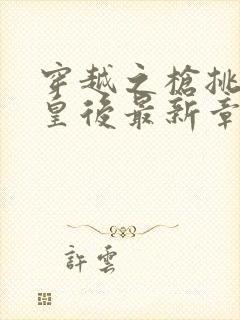 穿越之槍挑
皇後最新章
許雲